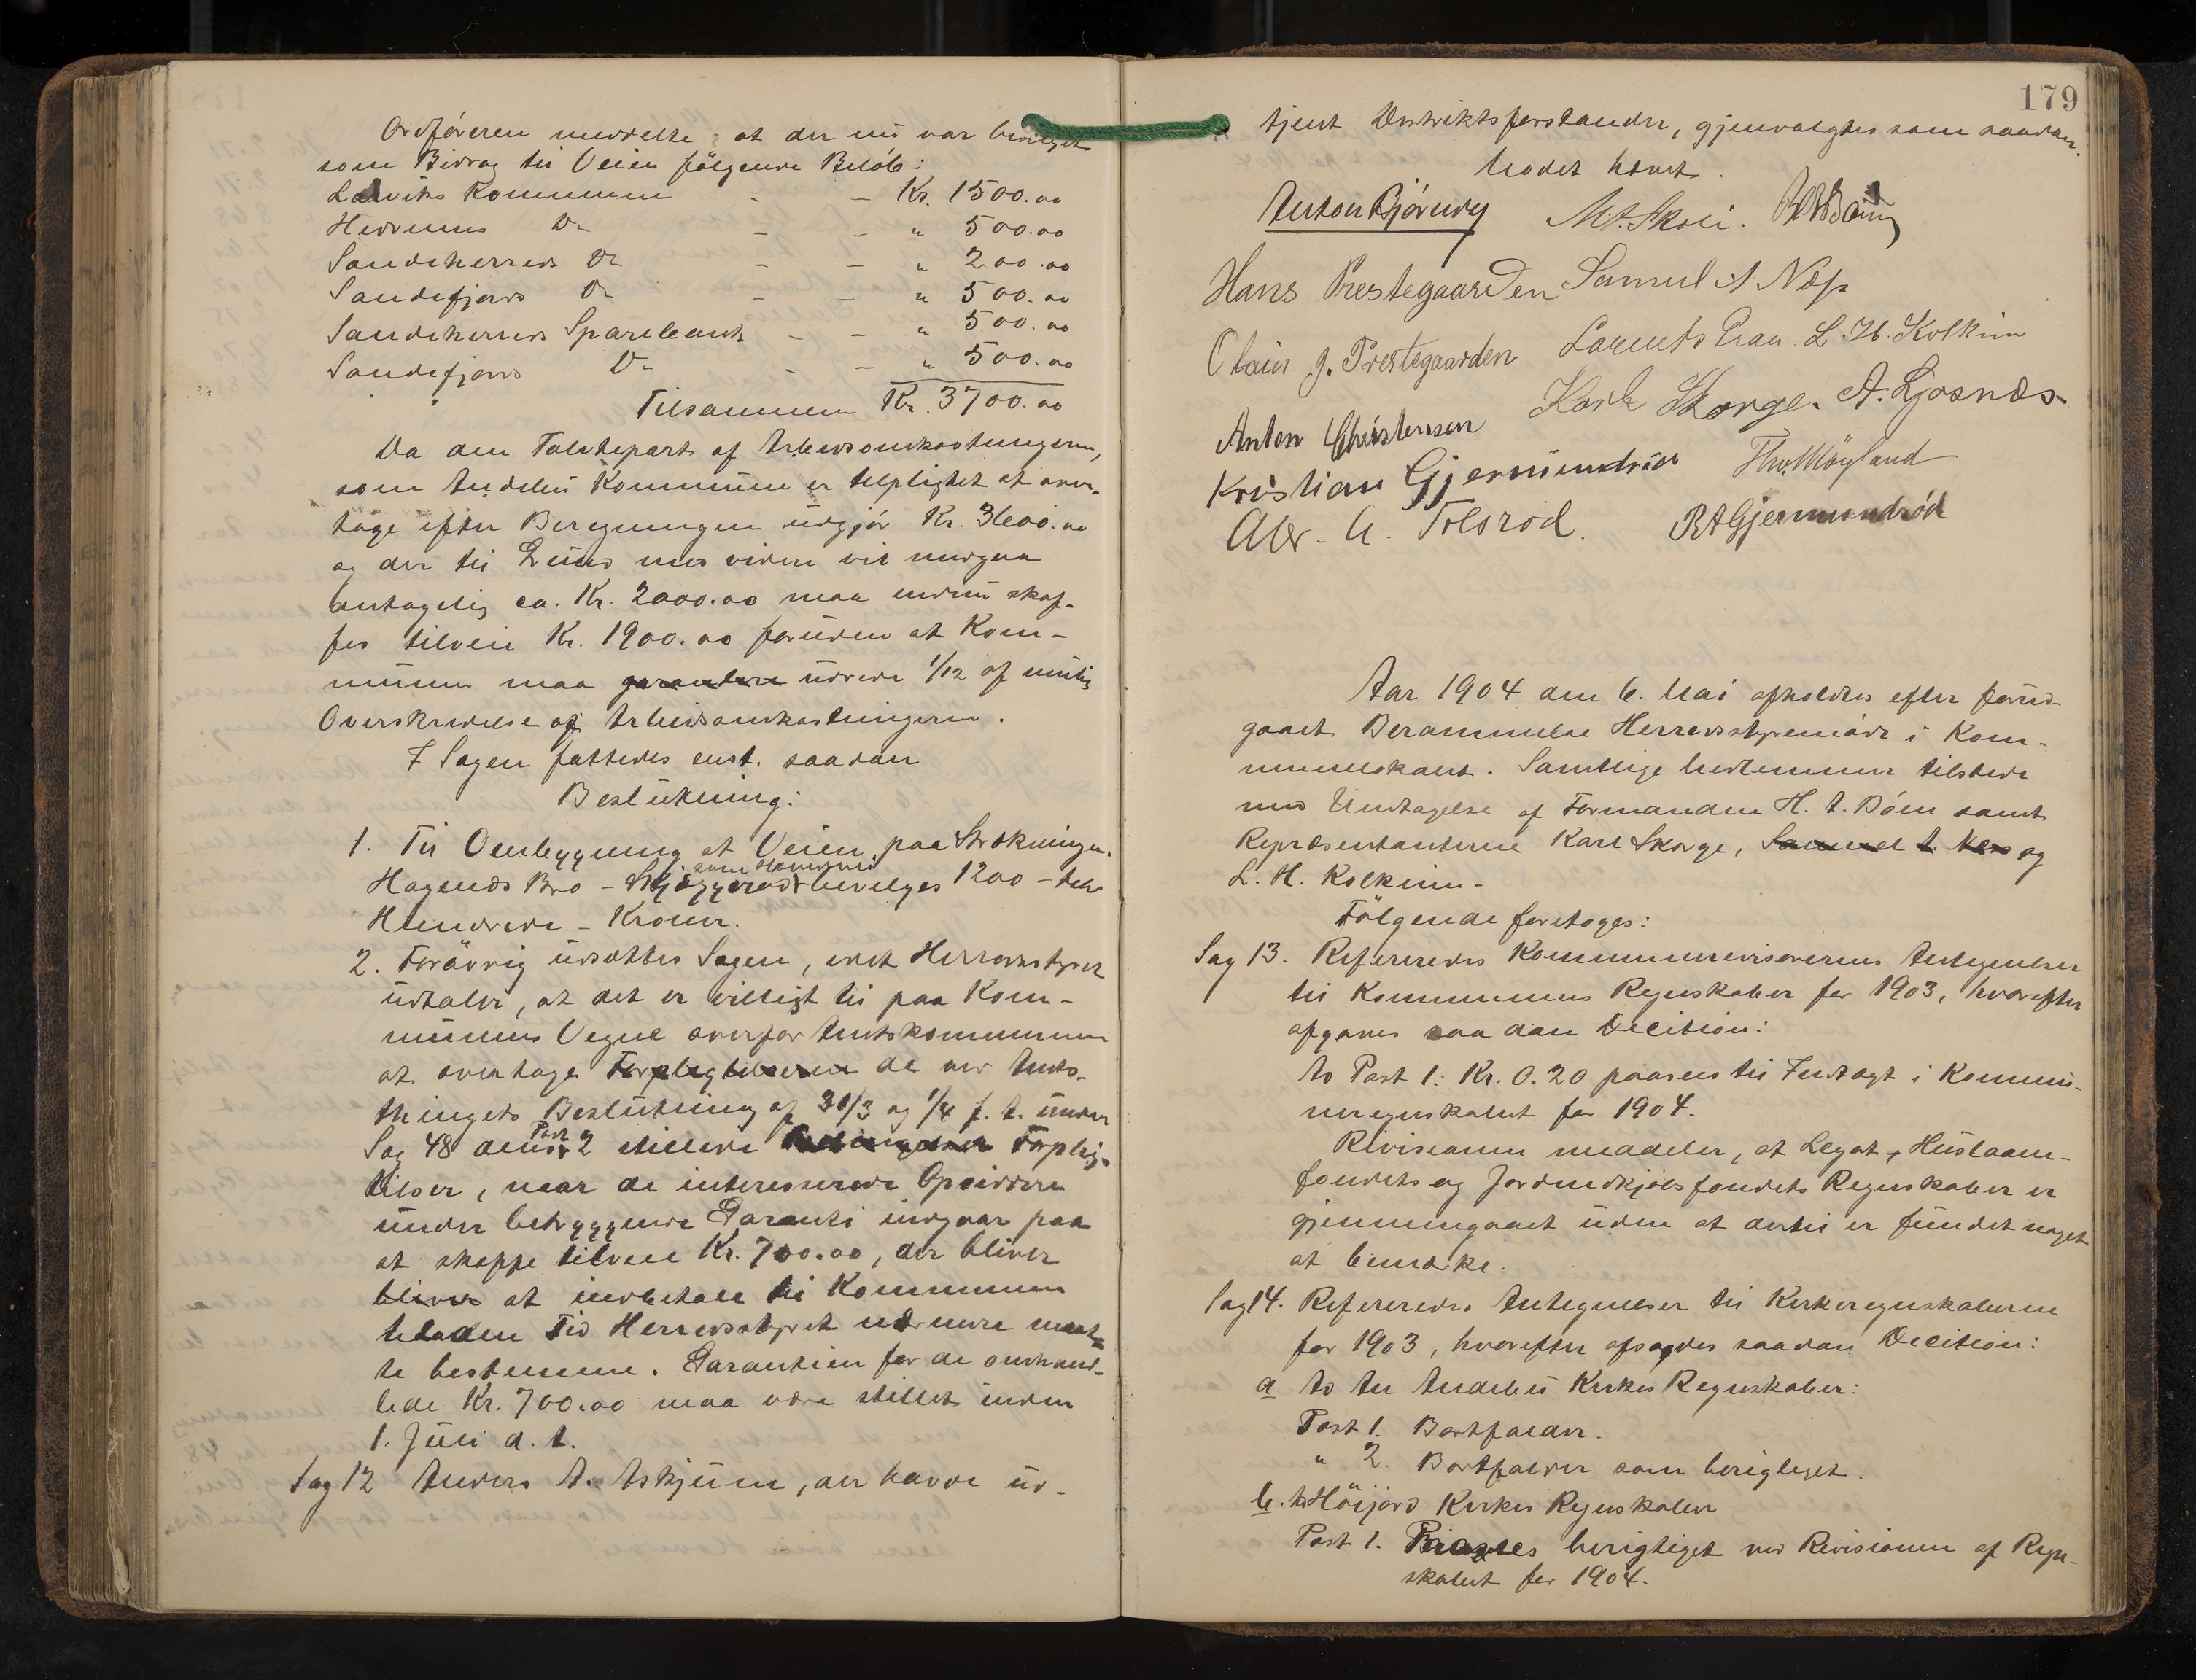 Ordføreren meddelte at der nu var bevilget
som Bidrag til Veien følgende Beløb:
Larviks Kommune - - Kr. 1500.00
Hedrums Do - - " 500.00
Sandeherreds Do - - " 200.00
Sandefjords Do - - " 500.00
Sandeherreds Sparebank - - " 500.00
Sandefjords Do - - " 500.00
Tilsammen Kr. 3700.00
Da den Tolvtepart af Arbeidsomkostningerne,
som Andebu Kommune er tilpligtet at over-
tage efter Beregningen udgjør Kr. 3600.00
og der til Grund m.v. videre vil medgaa
antagelig ca. Kr. 2000.00 maa endnu skaf-
fes tilveie Kr. 1900.00 foruden at Kom-
munen maa garantere udrede 1/12 af mulig
Overskridelse af Arbeidsomkostningerne.
I Sagen fattedes enst. saadan
Beslutning:
1. Til Omlægning af Veien paa Strækningen
Hagenæs Bro - Skjæggerød som bevilges 1200 - tolv
Hundrede - Kroner.
2. Forøvrig udsættes Sagen, idet Herredsstyret
udtaler, at det er villigt til paa Kom-
munens Vegne overfor Amtskommunen
at overtage Forpligtelserne de ved Amts-
thingets Beslutning af 31/3 og 1/4 f. A. under
Sag 48 dens Post 2 stillede Betingelser Forplig-
telser, naar de interesserede Opsiddere
under betryggende Garanti indgaar paa
at skaffe tilveie Kr. 700.00, der bliver
bliver at indbetale til Kommunen
til den Tid Herredsstyret nærmere maat-
te bestemme. Garantien for de omhand-
lede Kr. 700.00 maa være stillet inden
1. Juli d. A.
Sag 12 Anders A. Askjum, der havde ud-
179
tjent Distriktsforstander, gjenvalgtes som saadan.
Mødet hævet.
Anton Bjørndy M. A. Skoli.
Hans Prestegaarden Samuel A Næss
Olain J. Prestegaarden Laurits Traa. L. H. Kolkinn
Anton Christensen Karl Skorge. A. Ljosnæs.
Kristian Gjermundrød Thv. Møyland
Alex. A. Tolsrød. R A Gjermundrød
Aar 1904 den 6. Mai afholdtes efter forud-
gaaet Berammelse Herredsstyremøde i Kom-
munelokalet. Samtlige Medlemmer tilstede
med Undtagelse af Formanden H. A. Døen samt
Repræsentanterne Karl Skorge, Samuel A. Næss og
L. H. Kolkinn -
Følgende foretoges:
Sag 13. Refereredes Kommunerevisorernes Antegnelser
til Kommunens Regnskaber for 1903, hvorefter
afgaves saadan Decition:
Ad Post 1: Kr. 0.20 paasees til Indtægt i Kommu-
neregnskabet for 1904.
Revisionen meddeler, at Legat-, Huslaane-
fondets og Jordindkjøbsfondets Regnskaber er
gjennemgaaet uden at dertil er fundet noget
at bemærke.
Sag 14. Refereredes Antegnelser til Kirkeregnskaberne
for 1903, hvorefter afsagdes saadan Decition:
a Ad An Andebu Kirkes Regnskaber:
Post 1. Bortfalder.
" 2. Bortfalder som berigtiget.
b. Ad Høijord Kirkes Regnskaber
Post 1. Paasees berigtiget ved Revisionen af Regn-
skabet for 1904.